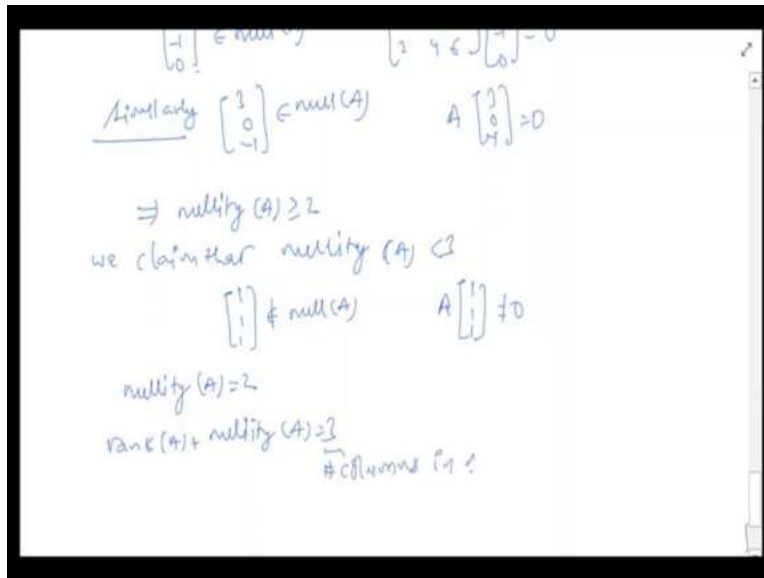 [-1 0] ∈ null(A) [2 4 6] [-1 0] = 0
Similarly [3 0 -1] ∈ null(A) A [3 0 -1] = 0
⇒ nullity (A) ≥ 2
we claim that nullity (A) < 3
[1 1 1] ∉ null(A) A [1 1 1] ≠ 0
nullity (A) = 2
rank (A) + nullity (A) = 3
# columns in